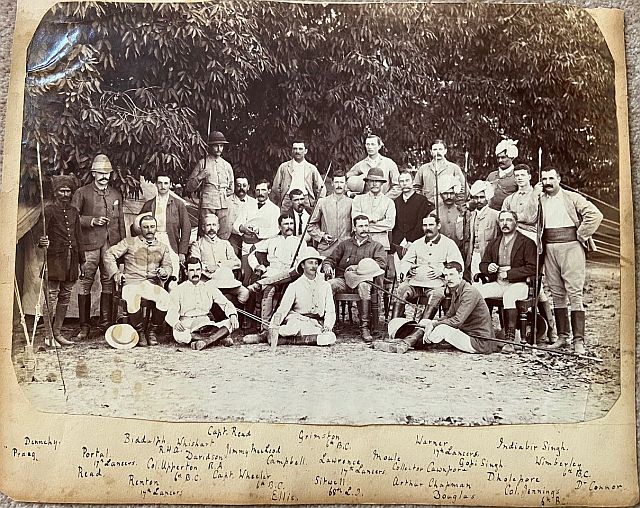 Capt. Read Grimston
Dennehy. Biddulph Whishart 6th B.C. Warner Indiabir Singh.
Praag Portal R.H.G. Davidson Jimmy MacLeod 17th Lancers.
17th Lancers. Col. Upperton R.A. Campbell. Lawrence Moule Gopi Singh Wimberley
Read 6th B.C. 17th Lancers. Collector Cawnpore 6th B.C.
Renton Capt. Wheeler Sitwell Arthur Chapman Dholepore Dr Connor.
17th Lancers 6th B.C. 68th L.I. Douglas Col. Jennings
Ellis. 6th B.C.